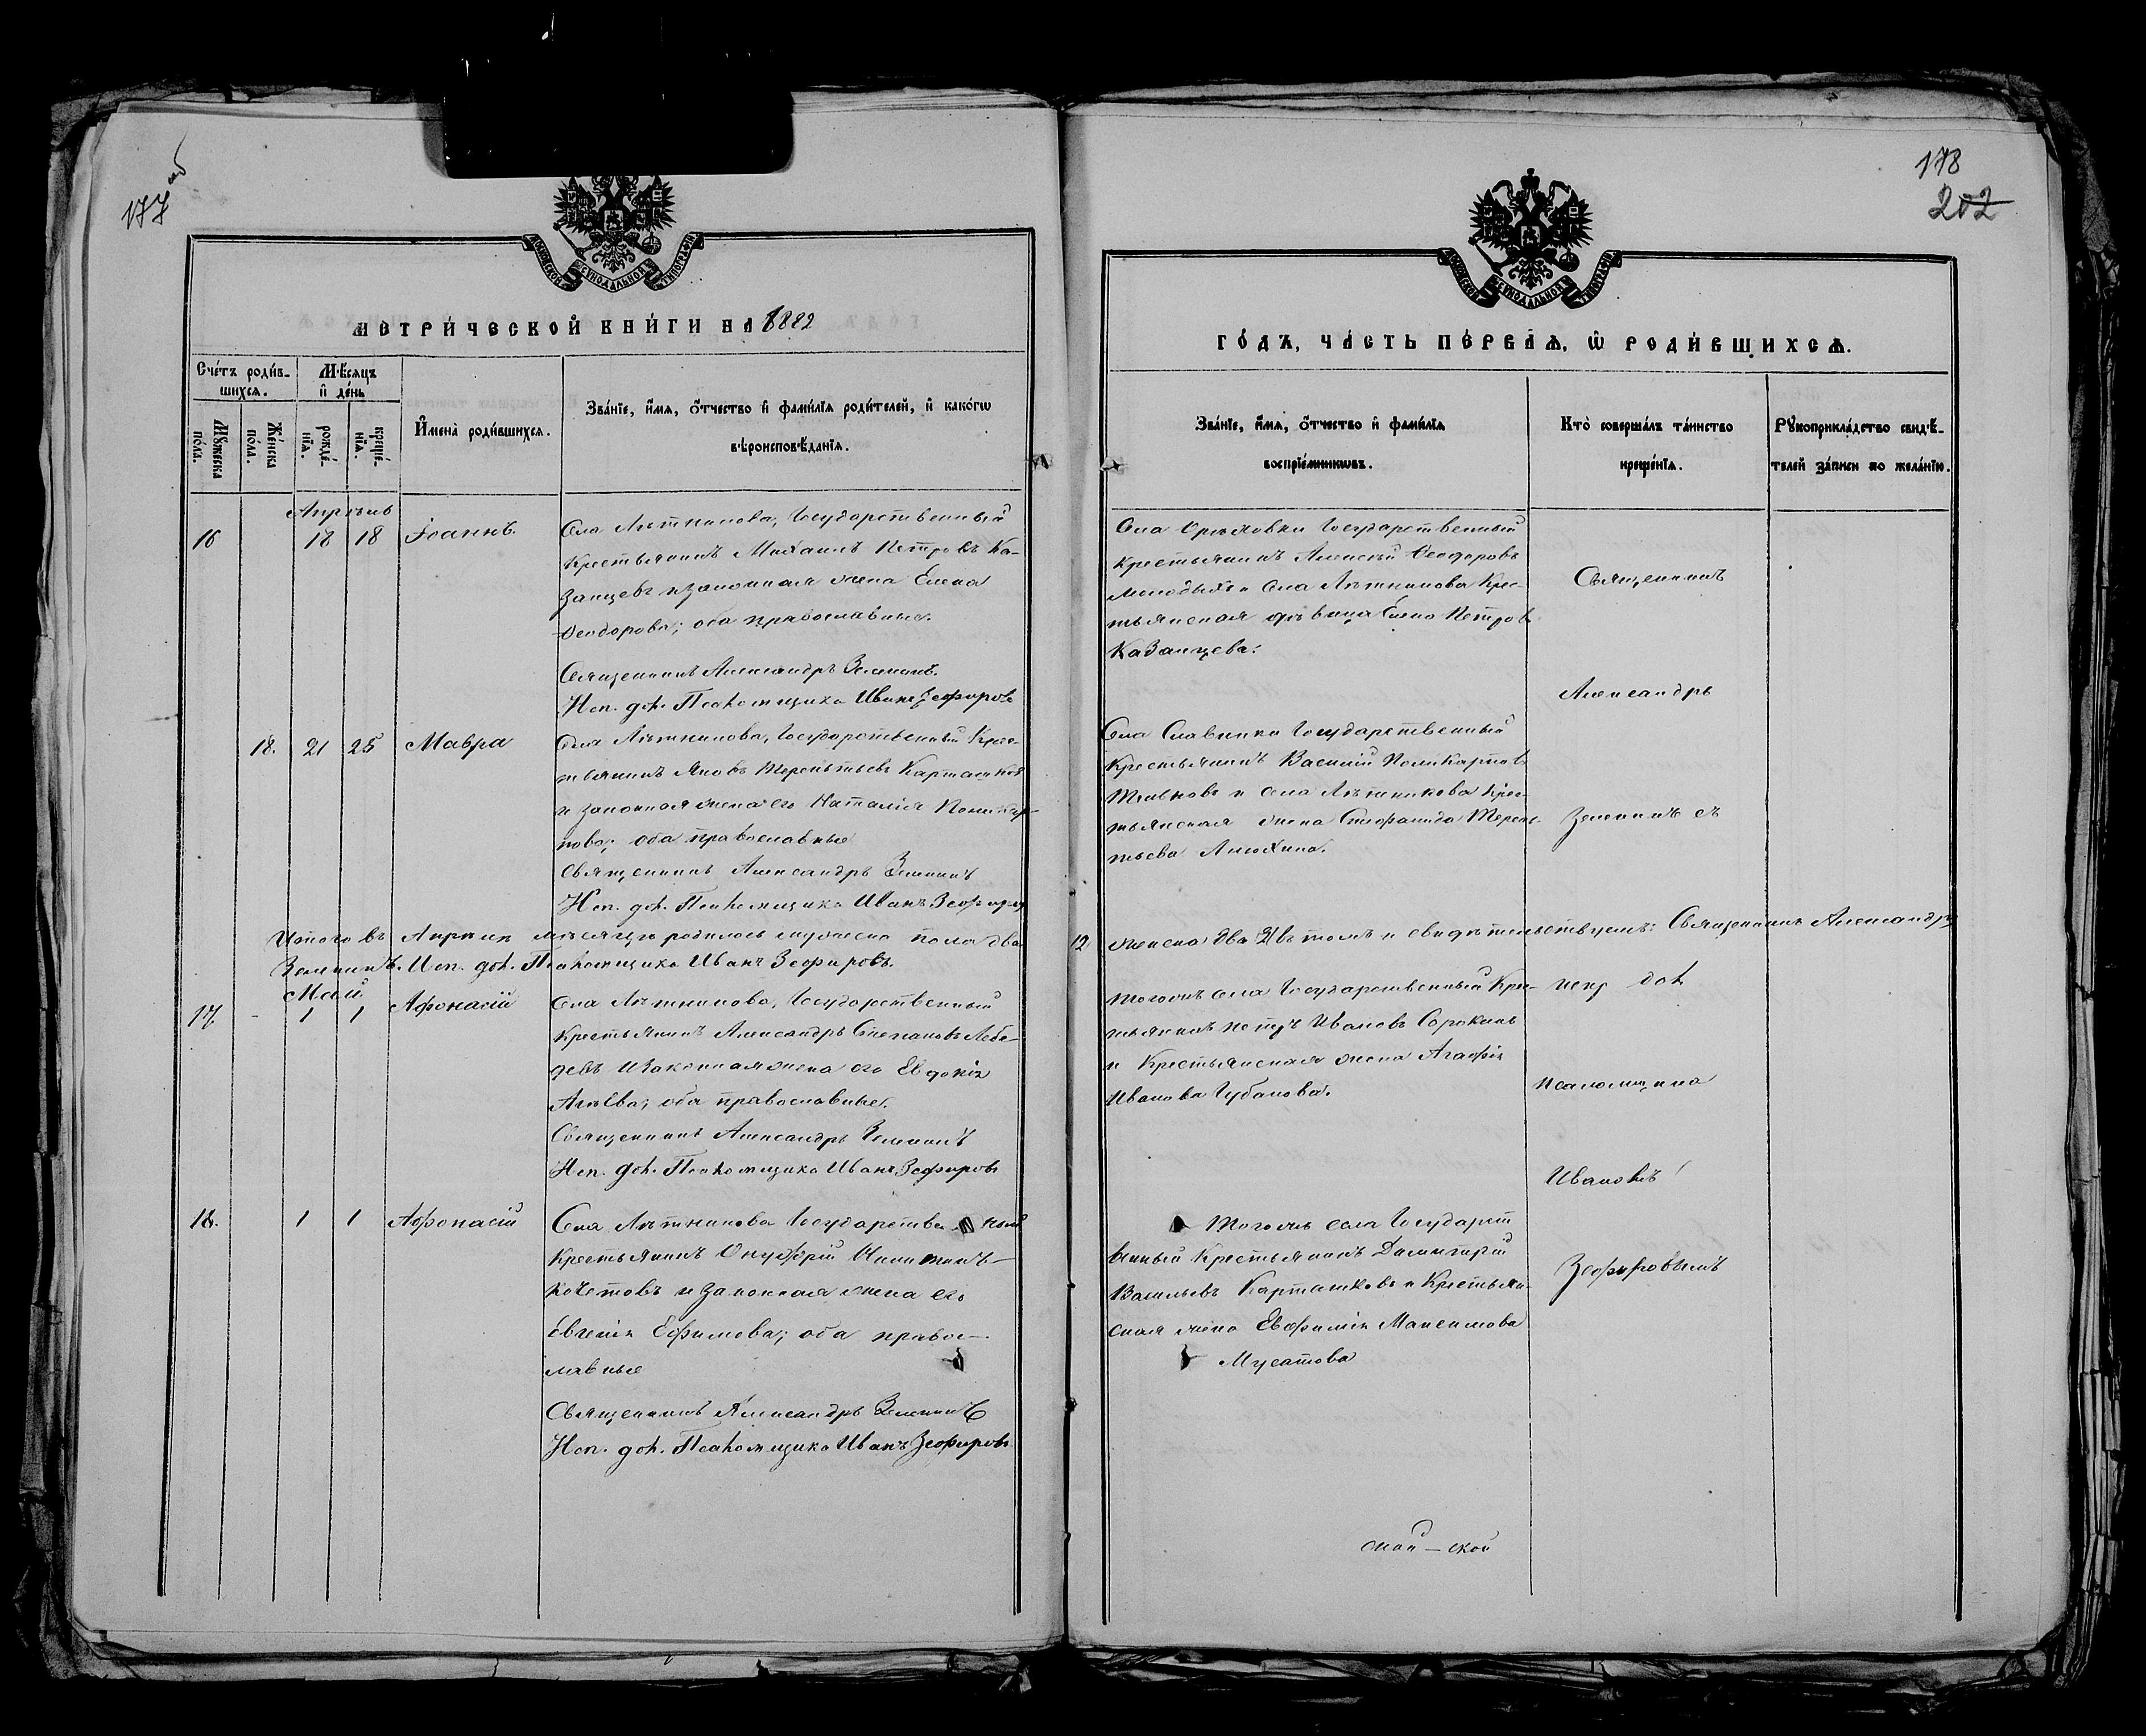 177 об
МОСКОВСКОЙ СѴНОДАЛЬНОЙ ТИПОГРАФІИ
МЕТРИ́ЧЕСКОЙ КНИ́ГИ НА 1882
Сче́тъ роди́в-
шихся.
Мѣ́сяцъ
и҆ де́нь
Мꙋ́жеска
по́ла.
Же́нска
по́ла.
рожде́-
нїѧ.
креще́-
нїѧ.
И҆мена̀ роди́вшихсѧ.
Зва́нїе, и҆́мѧ, ѻ҆́тчество и҆ фами́лїѧ роди́телей, и҆ како́гѡ
вѣроисповѣ́данїѧ.
Апрѣль
16 18 18 Іоаннъ.
Села Лѣтникова, Государственный
Крестьянинъ Михаилъ Петровъ Ка-
занцевъ и законная жена Елена
Ѳеодорова; оба православные.
Священникъ Александръ Зеленинъ.
Исп. дол. Псаломщика Иванъ Зефировъ
18. 21 25 Мавра
Села Лѣтникова, Государственный Крес-
тьянинъ Яковъ Терентьевъ Карташков
и законная жена его Наталія Поликар-
пова; оба православные
Священникъ Александръ Зеленинъ
Исп. дол. Псаломщика Иванъ Зефиров
Итого въ Апрѣлѣ мѣсяцѣ родилось мужеска пола два
Зеленинъ. Исп. дол. Псаломщика Иванъ Зефировъ.
Май.
17. - 1 1 Афонасій
Села Лѣтникова, Государственный
Крестьянинъ Александръ Степановъ Лебе-
девъ и законная жена его Евдокія
оба православные.
Священникъ Александръ Зеленинъ
Исп. дол. Псаломщика Иванъ Зефировъ
18. 1 1 Афонасій
Села Лѣтникова Государствен-ный
Крестьянинъ Онуфрій Никитинъ
Кочетовъ и законная жена его
Евгенія Ефимова; оба правос-
лавные
Священникъ Александръ Зеленинъ
Исп. дол. Псаломщика Иванъ Зефировъ
178
202
МОСКОВСКОЙ СѴНОДАЛЬНОЙ ТИПОГРАФІИ
ГО́ДЪ, ЧА́СТЬ ПЕ́РВАѦ, Ѡ҆ РОДИ́ВШИХСѦ.
Зва́нїе, и҆́мѧ, ѻ҆́тчество и҆ фами́лїѧ
воспрїе́мникѡвъ.
Кто̀ соверша́лъ та́инство
креще́нїѧ.
Рꙋкоприкла́дство свидѣ́-
телей за́писи по жела́нїю.
Села Орѣховки Государственный
Крестьянинъ Алексѣй Ѳеодоровъ
Молодыхъ и села Лѣтникова Крес-
тьянская дѣвица Елена Петров
Казанцева.
Священникъ
Александръ
Села Славинки Государственный
Крестьянинъ Василій Поликарпов
и села Лѣтникова Крес-
тьянская жена Стефанида Терен-
тьева Анохина.
Зеленинъ съ
12 женска два Въ томъ и свидѣтельствуемъ: Священникъ Александръ
Тогожъ села Государственный Крес-
тьянинъ Петръ Ивановъ Сорокинъ
и Крестьянская жена Агафія
Иванова Губанова.
испр дол
псаломщика
Иваномъ
Тогожъ села Государст
венный Крестьянинъ Димитрій
Васильевъ Карташковъ и Крестьян-
ская жена Евфимія Максимова
Мусатова
Зефировымъ
май - ской